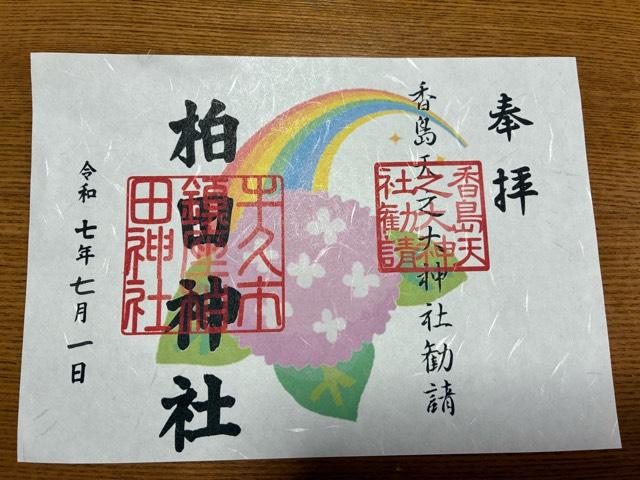 奉拝
香島天之大神社勧請
香島天
之大神
社勧請
柏田神社
牛久市
田神社
令和七年七月一日